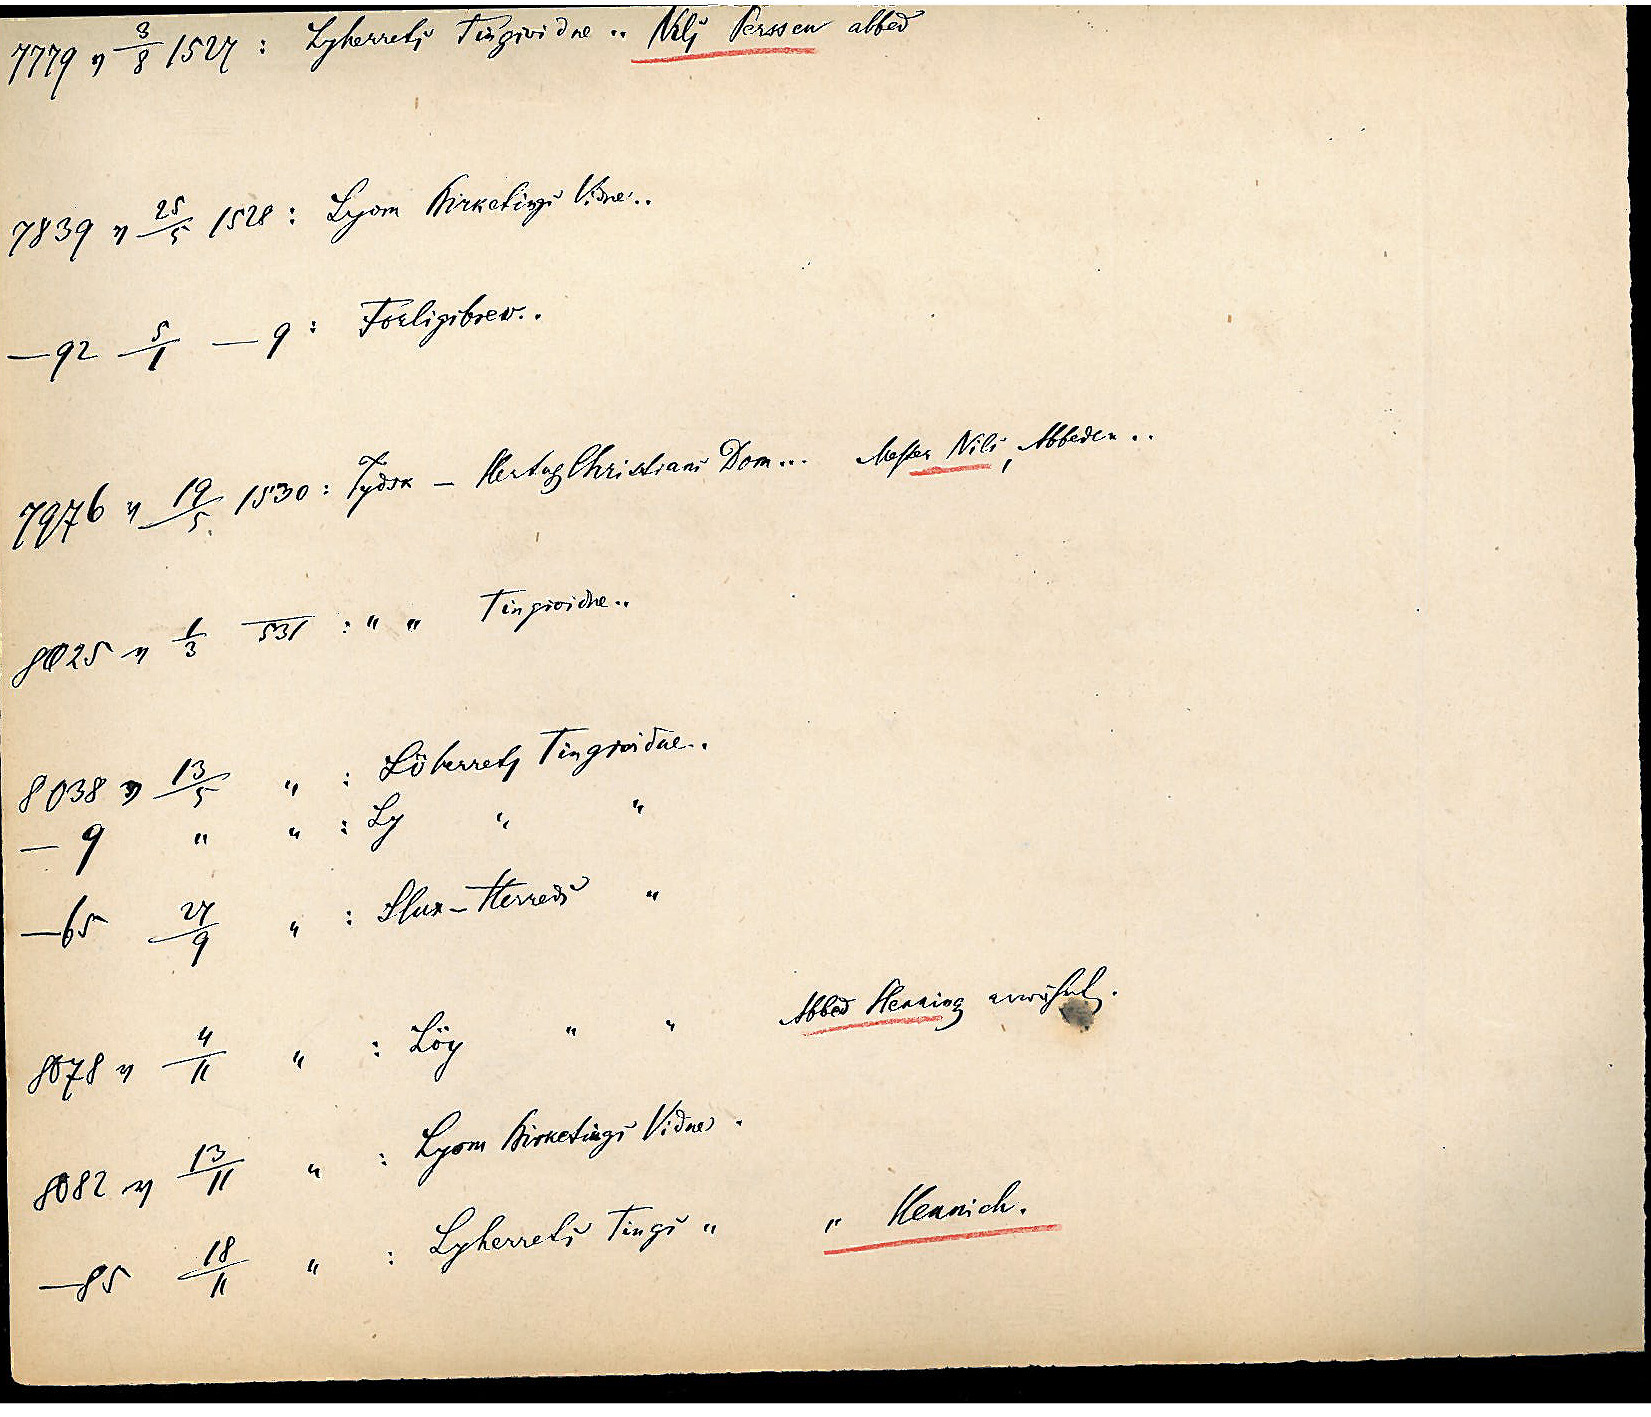 7779 „ 3/8 1527 : Lyherrets Tingvidne .. Nels Perssen abbed
7839 „ 25/5 1528 : Lyom Birketings Vidne..
—92 5/1 —9 : Forligsbrev..
7976 „ 19/5 1530 : Tydsk — Hertug Christians Dom... Messer Nils, Abbeden ..
8025 „ 1/3 531 : „ „ Tingvidne..
8038 „ 13/5 „ : Löherrets Tingvidne..
— 9 „ „ : Ly „ „
—65 27/9 „ : Slux-Herreds „
8078 „ 4/11 „ : Löy „ „ Abbed Henning
8082 „ 13/11 „ : Lyom Birketings Vidne .
—85 18/11 „ : Lyherrets Tings „ „ Hennich.